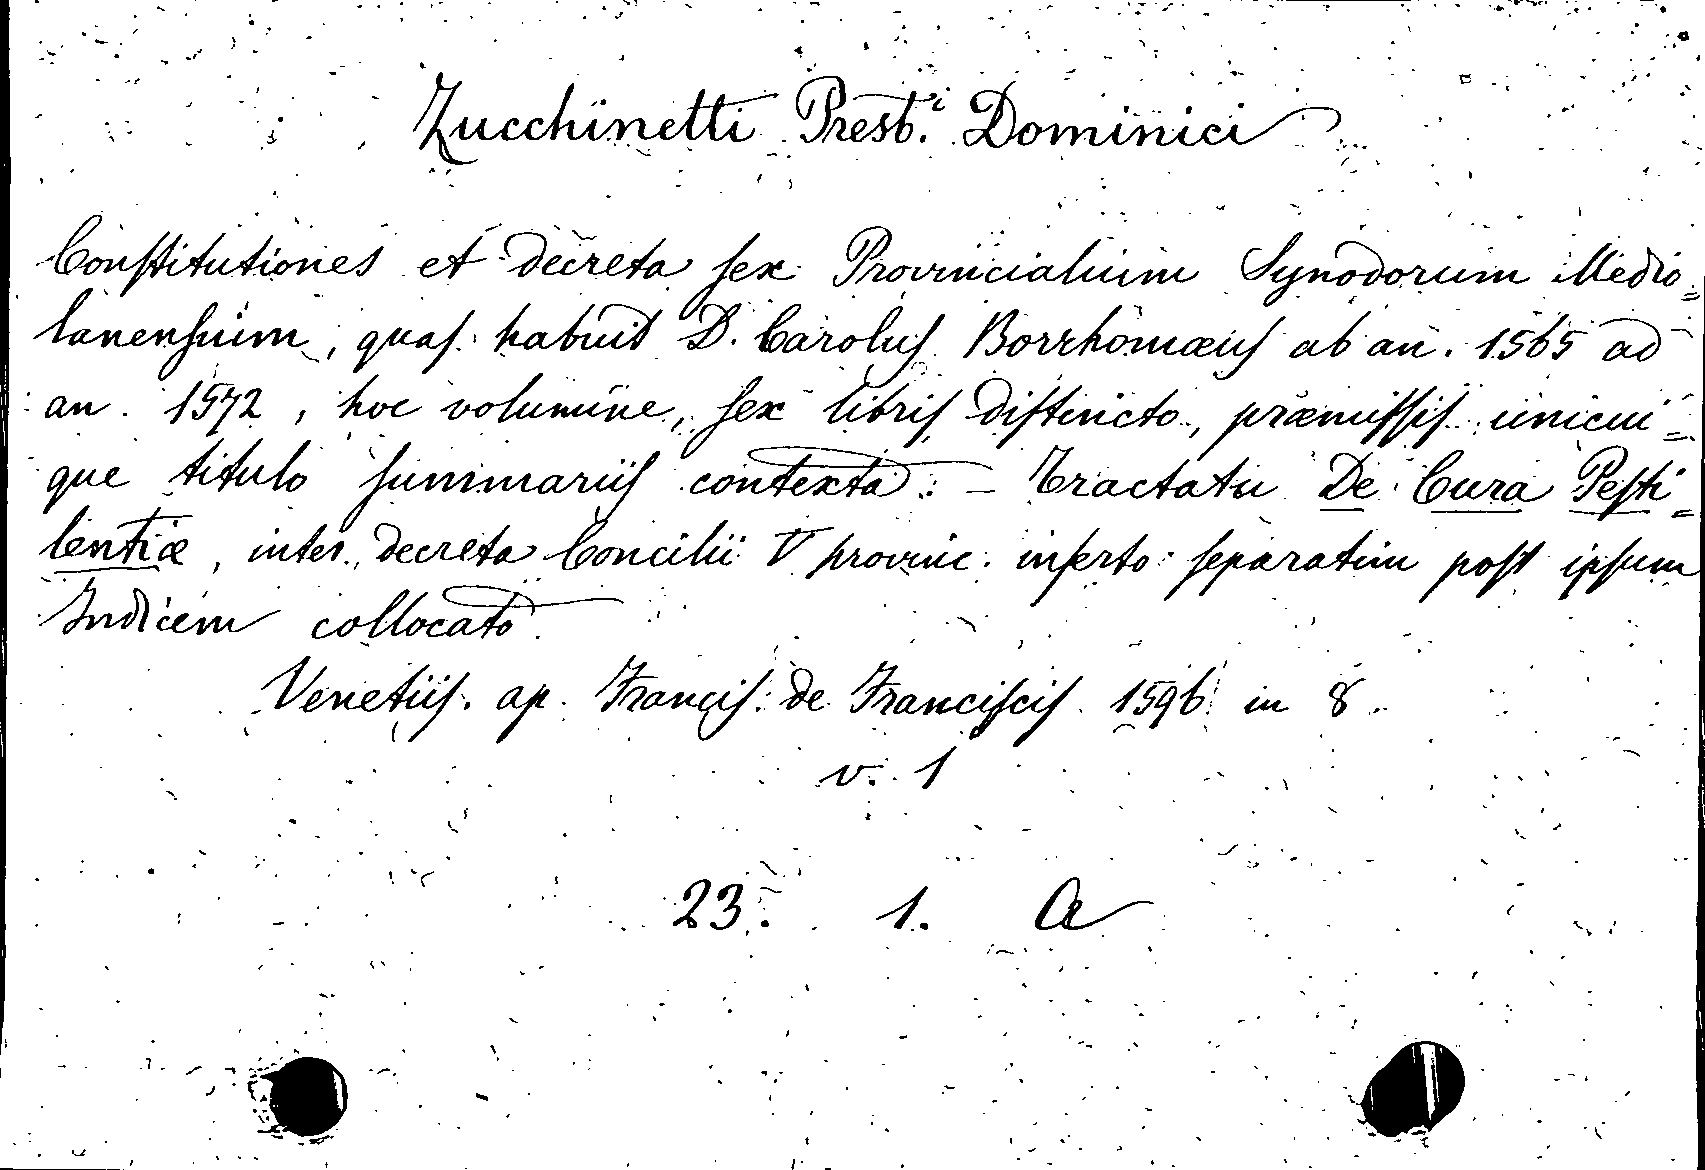 Zucchinetti Presb.i Dominici
Constitutiones et decreta sex Provincialium Synodorum Medio=
lanensium, quas habuit D. Carolus Borrhomæus ab an. 1565 ad
an. 1572, hoc volumine, sex libris distincto, præmissis unicui=
que titulo summariis contexta: - Tractatu De Cura Pesti=
lentiæ, inter decreta Concilii V provinc. inserto separatim post ipsum
Indicem collocato.
Venetiis. ap. Francis. de Franciscis 1596 in 8.
v. 1
23. 1. A